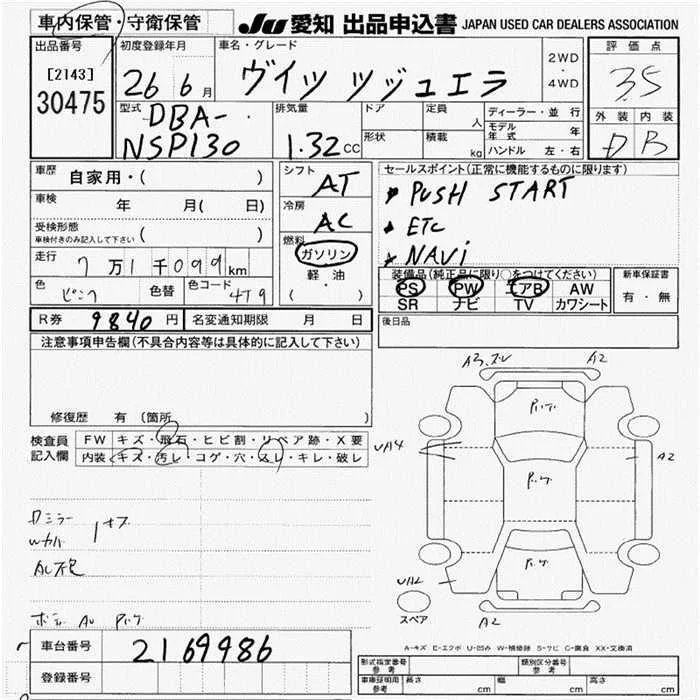 車内保管・守衛保管
JU 愛知 出品申込書 JAPAN USED CAR DEALERS ASSOCIATION
出品番号
[2143]
30475
初度登録年月
26 6月
車名・グレード
ヴイッツ ジュエラ
2WD
・
4WD
評価点
3.5
外装 内装
D B
型式
DBA-
NSP130
排気量
1.32CC
ドア
形状
定員 人
積載 kg
ディーラー・並行
モデル年式 年
ハンドル 左・右
車歴
自家用・( )
車検 年 月( 日)
受検形態
車検付きのみ記入して下さい ( )
走行 7万1千099km
色 ピンク 色替 色コード 4T9
シフト
AT
冷房
AC
燃料
ガソリン
軽油
( ・ )
セールスポイント(正常に機能するものに限ります)
PUSH START
ETC
NAVi
装備品(純正品に限り○をつけてください)
PS PW エアB AW
SR ナビ TV カワシート
新車保証書
有・無
R券 9840円 名変通知期限 月 日
後日品
注意事項申告欄(不具合内容等は具体的に記入して下さい)
修復歴 有 (箇所 )
検査員
記入欄
FW キズ・飛石・ヒビ割・リペア跡・X要
内装 キズ・汚レ・コゲ・穴・スレ・キレ・破レ
A2
UA4
A2
A2
スペア
A-キズ E-エクボ U-凹み W-補修跡 S-サビ C-腐食 XX-交換済
車台番号 2169986
登録番号
形式指定番号
参考
類別区分番号
参考
車庫証明用
参考
長さ cm 幅 cm 高さ cm